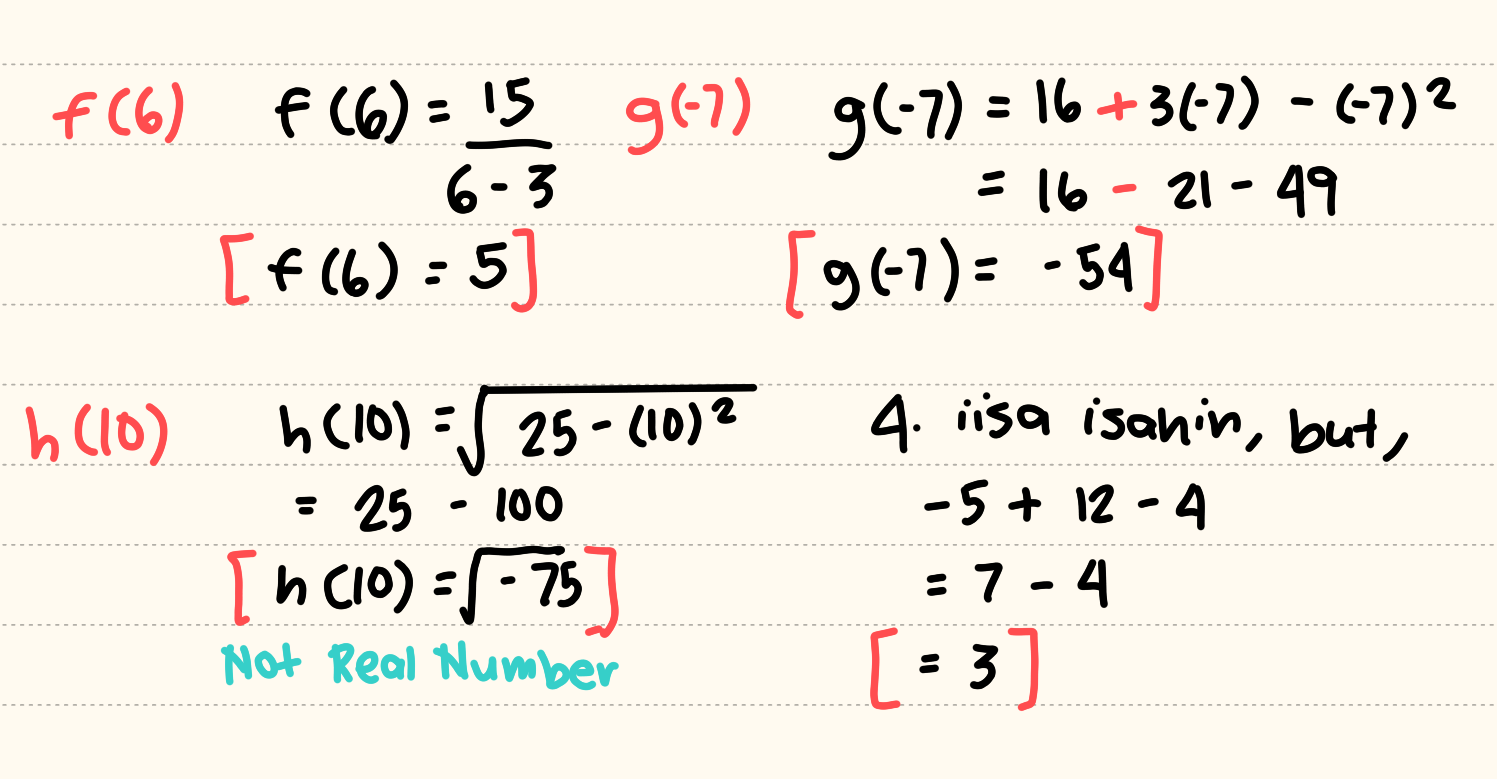 f(6) f(6) = 15
6 - 3
[f(6) = 5]
g(-7) g(-7) = 16 + 3(-7) - (-7)²
= 16 - 21 - 49
[g(-7) = -54]
h(10) h(10) = √25 - (10)²
= 25 - 100
[h(10) = √-75]
Not Real Number
4. iisa isahin, but,
-5 + 12 - 4
= 7 - 4
[= 3]